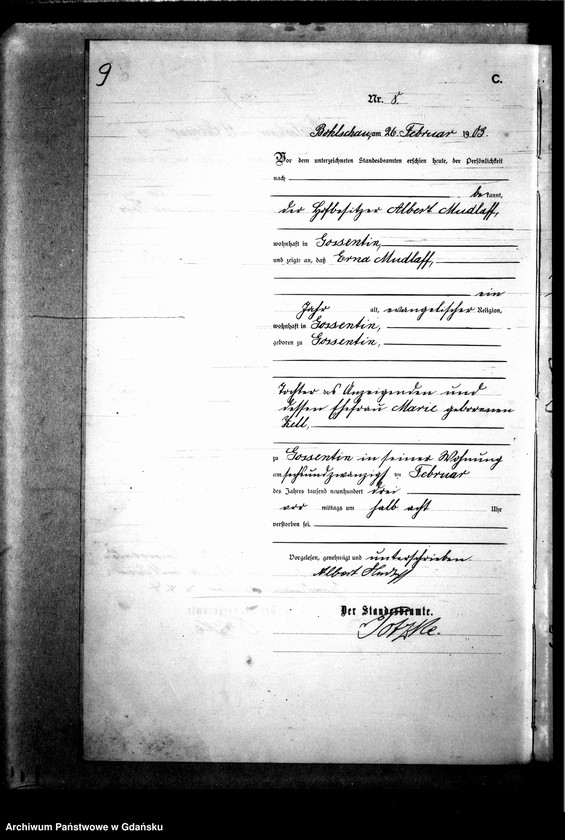 9
C.
Nr. 8.
Bohlschau, am 26. Februar 1903.
Vor dem unterzeichneten Standesbeamten erschien heute, der Persönlichkeit
nach
bekannt,
der Hofbesitzer Albert Mudlaff,
wohnhaft in Gossentin,
und zeigte an, daß Erna Mudlaff,
ein
Jahr alt, evangelischer Religion,
wohnhaft in Gossentin,
geboren zu Gossentin,
Tochter des Anzeigenden und
dessen Ehefrau Marie geborenen
Zell,
zu Gossentin in seiner Wohnung
am sechsundzwanzigsten Februar
des Jahres tausend neunhundert drei
vor mittags um halb acht Uhr
verstorben sei.
Vorgelesen, genehmigt und unterschrieben
Albert Mudlaff
Der Standesbeamte.
Archiwum Państwowe w Gdańsku